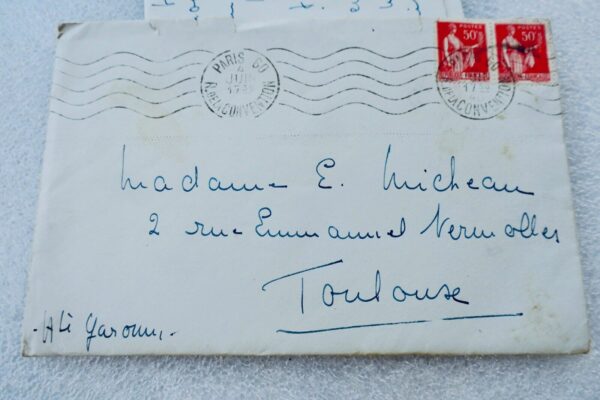 PARIS 60
R. DE LA CONVENTION
4
JUIN
POSTES
50c
POSTES
50c
Madame E. Micheau
2 rue Emmanuel Vermolles
Toulouse
- Hte Garonne -